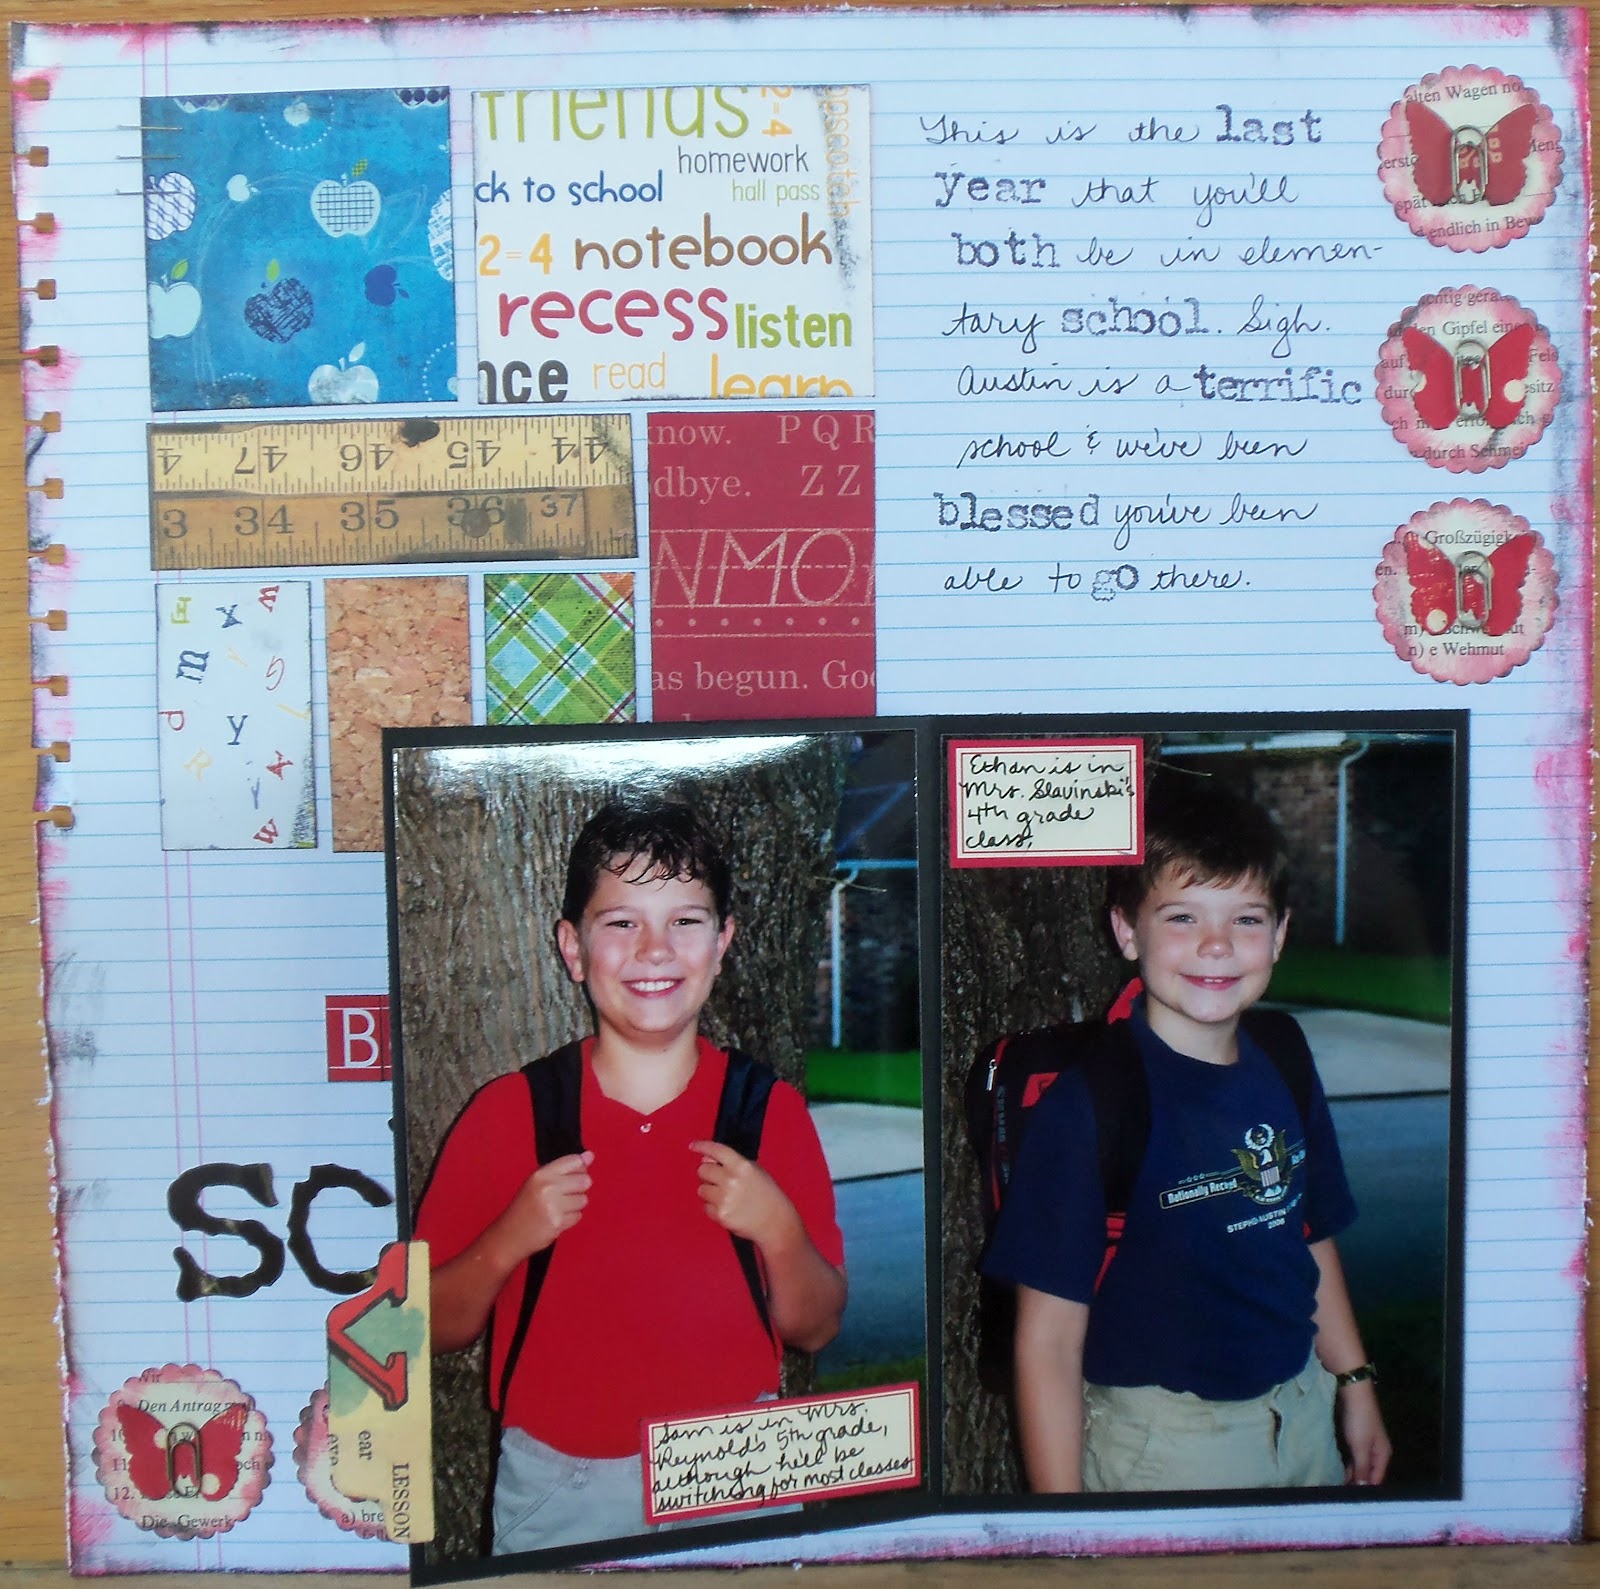 friends
2-4
hopscotch
homework
ck to school
hall pass
2=4 notebook
recess listen
nce read learn
47 46 45 44
3 34 35 36 37
know. P Q R
dbye. Z Z
NMO
as begun. Goo
E X W
m y G
p y
R A
W
This is the last
year that you'll
both be in elemen-
tary school. Sigh.
Austin is a terrific
school & we've been
blessed you've been
able to go there.
alten Wagen no
Meng
spät
d endlich in Bewe
chtig gera
den Gipfel eine
auf Fels
durch besitz
ch
durch Schmei
Großzügigk
en.
m)
n) e Wehmut
Ethan is in
Mrs. Slavinski's
4th grade
class.
B
SC
Nationally Recog
STEPH AUSTIN
2006
Sam is in Mrs.
Reynold's 5th grade,
although he'll be
switching for most classes
V
ear
LESSON
Wir
9. Den Antrag
10
11
12.
Die Gewerk
a) bre